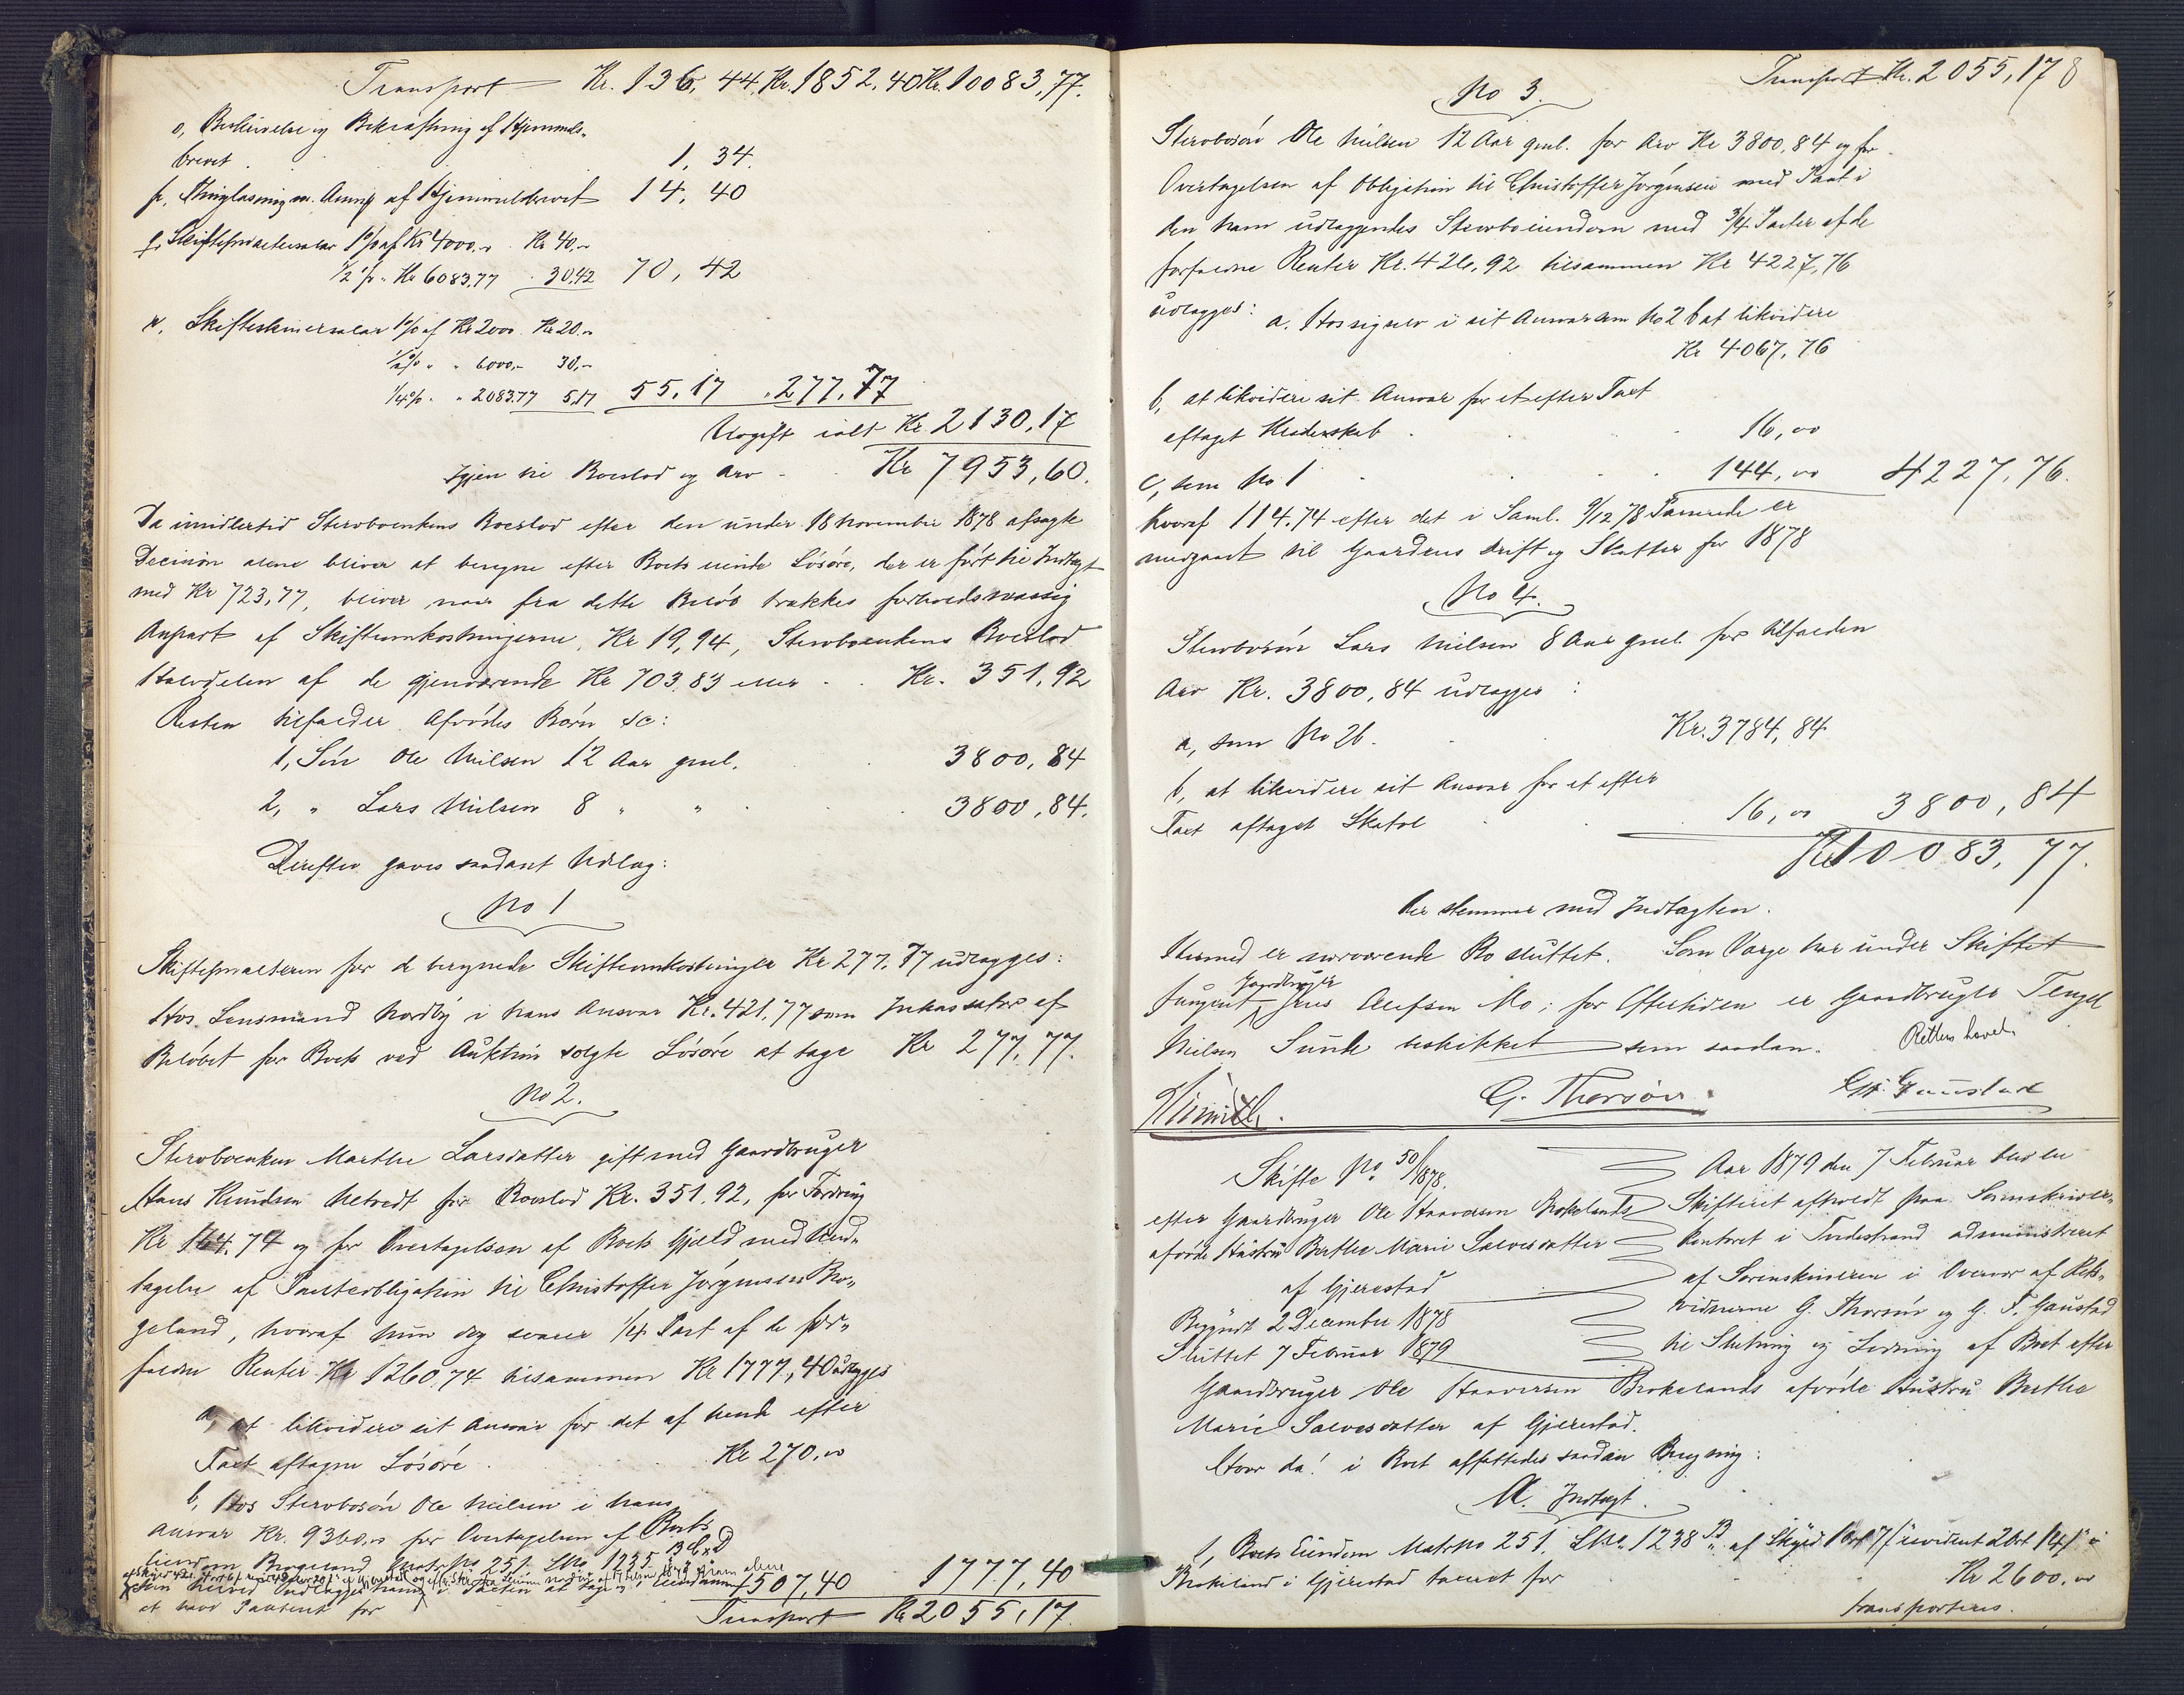 Transport Kr. 136,44. Kr. 1852,40 Kr. 10083,77.
o, Beskrivelse og Bekræftning af Hjemmels-
brevet . 1,34.
p, Thinglæsning m. Anmg af Hjemmelsbrevet 14,40
q, Skifteforvaltersalær 1% af Kr 4000.- . Kr 40.-
½ % " Kr 6083.77 . 30.42 70,42
r, Skifteskriversalær 1% af Kr 2000. Kr 20.-
½% " " 6000,- 30,-
¼% " " 2083.77 5.17 55,17 . 277,77
Udgift ialt Kr. 2130,17
Igjen til Boeslod og Arv - Kr 7953,60.
Da imidlertid Stervboenkens Boeslod efter den under 18 November 1878 afsagte
Decision alene bliver at beregne efter Boets eiende Løsøre, der er ført til Indtægt
med Kr 723,77, bliver naar fra dette Beløb trækkes forholdsmæssig
Anpart af Skifteomkostningerne, Kr 19,94, Stervboenkens Boeslod
Halvdelen af de gjenværende Kr 703.83 eller . . Kr. 351,92
Resten tilfalder Afdødes Børn sc:
1, Søn Ole Nilsen 12 Aar gml. 3800,84
2, " Lars Nilsen 8 " " 3800,84.
Derefter gaves saadant Udlæg:
No 1
Skifteforvalteren for de beregnede Skifteomkostninger Kr 277,77 udlægges:
Hos Lensmand Nordby i hans Ansvar Kr. 421,77 som Inkassator af
Beløbet for Boets ved Auktion solgte Løsøre at tage Kr 277,77.
No 2.
Stervboenken Marthe Larsdatter gift med Gaardbruger
Hans Knudsen Ulltvedt for Boeslod Kr. 351.92, for Fordring
Kr 164.74 og for Overtagelsen af Boets Gjæld med Und-
tagelse af Panteobligation til Christoffer Jørgensen Bro-
geland, hvoraf hun dog svarer ¼ Part af de for-
faldne Renter Kr 1260.74 tilsammen Kr 1777,40 udlægges
a, at likvidere sit Ansvar for det af hende efter
Taxt aftagne Løsøre . Kr 270.00
b, Hos Stervbosøn Ole Nilsen i hans
Ansvar Kr. 9360.00 for Overtagelsen af Boets
Eiendom Brogeland Matr No 251. LNo 1235 B C & D
som herved indlægges ham i at tage Eiendommen 1507,40 1777,40
et havd Panteret for Transport Kr 2055,17.
Transport Kr. 2055,17 8
No 3.
Stervbosøn Ole Nielsen 12 Aar gml. for Arv Kr 3800,84 og for
Overtagelsen af Obligation til Christoffer Jørgensen med Pant i
den ham udlæggendes Stervboeiendom med 3/4 Parter af de
forfaldne Renter Kr. 426,92 tilsammen Kr 4227,76
udlægges: a. Hos sig selv i sit Ansvar som No 2 b at likvidere
Kr 4067,76
b, at likvidere sit Ansvar for et efter Taxt
aftaget Klædeskab . 16,00
c, som No 1 . 144,00 4227,76.
hvoraf 114.74 efter det i Saml. 9/12 78 Passerede er
medgaaet til Gaardens Drift og Skatter for 1878
No 4.
Stervbosøn Lars Nielsen 8 Aar gml. for tilfalden
Arv Kr. 3800,84 udlægges :
a, som No 2 b. Kr. 3784,84
b, at likvidere sit Ansvar for et efter
Taxt aftaget Skatol 16,00 3800,84
Kr 10083,77.
der stemmer med Indtægten.
Hermed er nærværende Bo sluttet. Som Værge har under Skiftet
fungeret Gaardbruger Jens Olefsen Mo; for Eftertiden er Gaardbruger Tengel
Nielsen Sunde beskikket som saadan. Retten hævet.
G. Thorsøn. G. F. Gaustad
Skifte No. 50/1878.
efter Gaardbruger Ole Haaversen Brokelands
afdøde Hustru Berthe Marie Salvesdatter
af Gjerestad
Begyndt 2 December 1878
Sluttet 7 Februar 1879
Aar 1879 den 7 Februar blev en
Skifteret afholdt paa Sorenskriver-
kontoret i Tvedestrand administreret
af Sorenskriveren i Overvær af Rets-
vidnerne G. Thorsøn og G. F. Gaustad
til Slutning og Lodning af Boet efter
Gaardbruger Ole Haaversen Brokelands afdøde Hustru Berthe
Marie Salvesdatter af Gjerestad.
Hvor da! i Boet affattedes saadan Beregning:
A. Indtægt.
1, Boets Eiendom Matr No 251. LNo. 1238 B af Skyld 1 Ort 7 ß revideret 2 Ort 14 ß
Brokeland i Gjerestad taxeret for Kr 2600.00
transporteres.